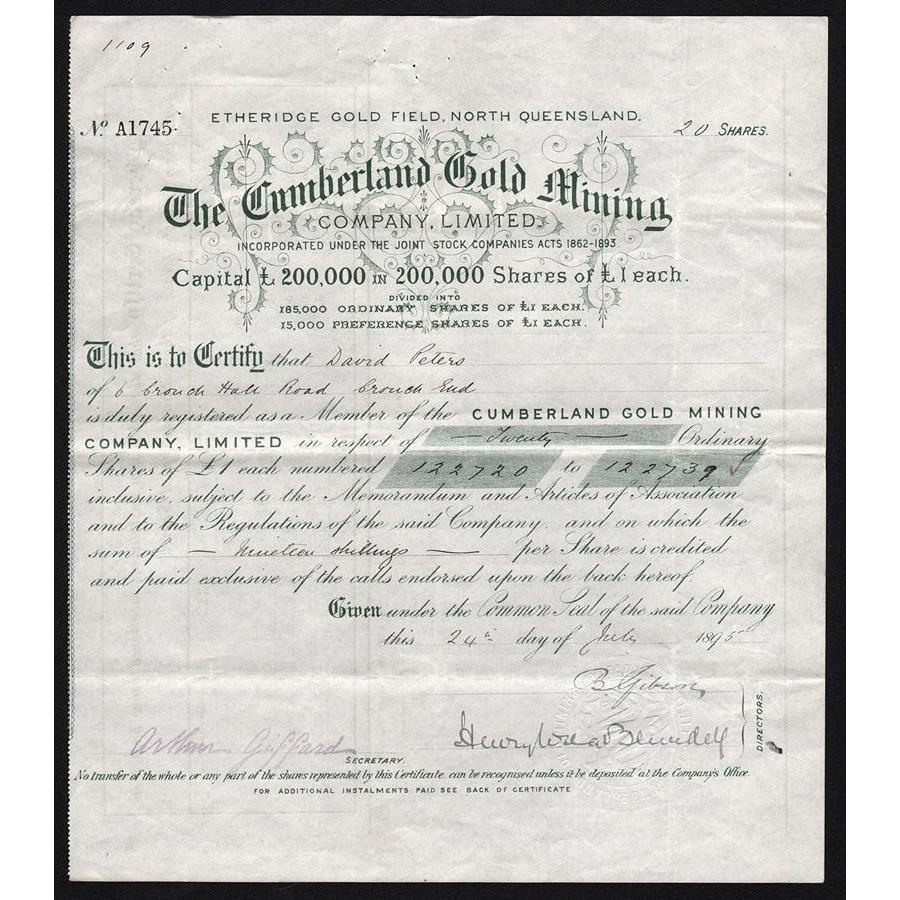 1109
ETHERIDGE GOLD FIELD, NORTH QUEENSLAND.
No. A1745.
20 SHARES.
The Cumberland Gold Mining
COMPANY, LIMITED.
INCORPORATED UNDER THE JOINT STOCK COMPANIES ACTS 1862-1893
Capital £200,000 IN 200,000 Shares of £1 each.
DIVIDED INTO
185,000 ORDINARY SHARES OF £1 EACH.
15,000 PREFERENCE SHARES OF £1 EACH.
This is to Certify that David Peters
of 6 Crouch Hall Road Crouch End
is duly registered as a Member of the CUMBERLAND GOLD MINING
COMPANY, LIMITED in respect of — Twenty — Ordinary
Shares of £1 each numbered 122720 to 122739
inclusive, subject to the Memorandum and Articles of Association
and to the Regulations of the said Company, and on which the
sum of — Nineteen shillings — per Share is credited
and paid exclusive of the calls endorsed upon the back hereof.
Given under the Common Seal of the said Company
this 24th day of July 1895
B. Gibson
Arthur Giffard
Henry Blundell
DIRECTORS.
SECRETARY.
No transfer of the whole or any part of the shares represented by this Certificate can be recognised unless it be deposited at the Company's Office.
FOR ADDITIONAL INSTALMENTS PAID SEE BACK OF CERTIFICATE